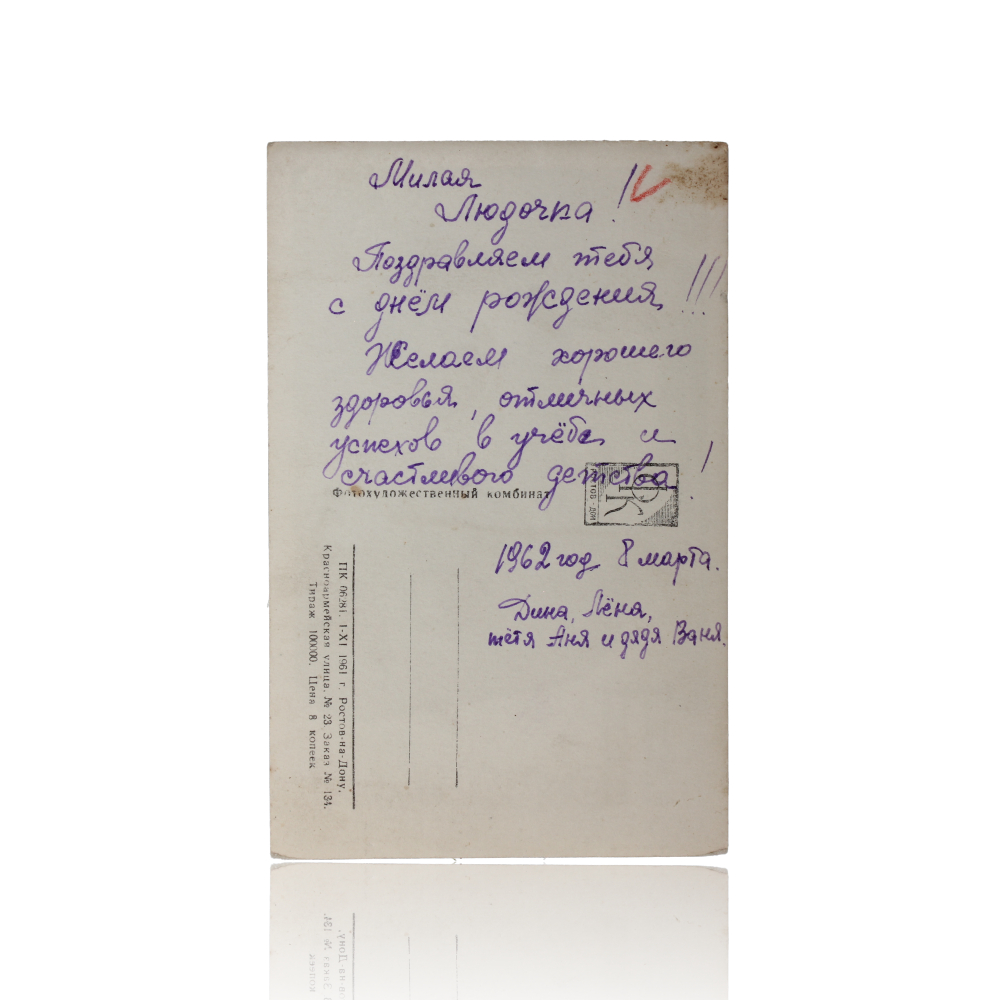 Милая
Людочка!
Поздравляем тебя
с днём рождения!!!
Желаем хорошего
здоровья, отличных
успехов в учёбе и
счастливого детства!
Фотохудожественный комбинат
ФК
1962 год 8 марта.
Дина, Лёна,
тётя Аня и дядя Ваня.
ПК 06281. 1-XI 1961 г. Ростов-на-Дону,
Красноармейская улица, № 23. Заказ № 134.
Тираж 100000. Цена 8 копеек